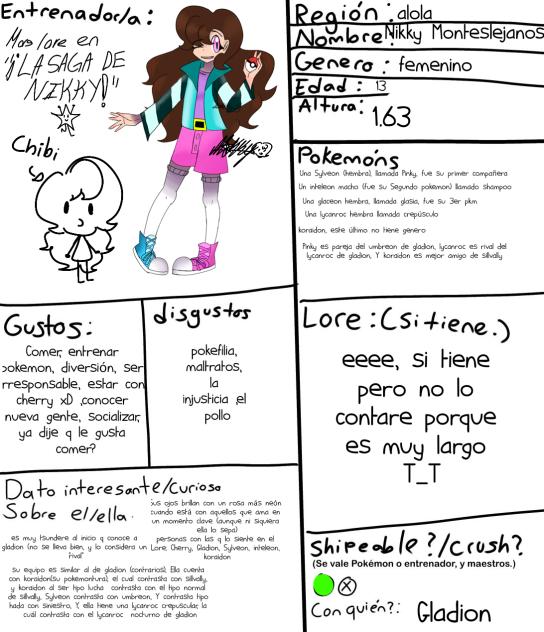 Entrenador/a:
Mas lore en
"¡LA SAGA DE
NIKKY!"
Chibi
Región: alola
Nombre: Nikky Monteslejanos
Genero: femenino
Edad: 13
Altura: 1.63
Pokemóns
Una Sylveon (hembra), llamada Pinky, fue su primer compañera
Un inteleon macho (fue su Segundo pokemon) llamado shampoo
Una glaceon hembra, llamada glasia, fue su 3er pkm
Una lycanroc hembra llamada crepúsculo
koraidon, este último no tiene genero
Pinky es pareja del umbreon de gladion, lycanroc es rival del
lycanroc de gladion, Y koraidon es mejor amigo de silvally
Gustos:
Comer, entrenar
pokemon, diversión, ser
irresponsable, estar con
cherry xD ,conocer
nueva gente, socializar,
ya dije q le gusta
comer?
disgustos
pokefilia,
maltratos,
la
injusticia ,el
pollo
Lore: (si tiene.)
eeee, si tiene
pero no lo
contare porque
es muy largo
T_T
Dato interesante/curioso
Sobre el/ella.
sus ojos brillan con un rosa más neón
cuando están con aquellos que ama en
un momento clave (aunque ni siquiera
ella lo sepa)
personas con las q lo siente en el
Lore: Cherry, Gladion, Sylveon, inteleon,
koraidon
es muy tsundere al inicio q conoce a
gladion (no se lleva bien, y lo considera un
"rival"
su equipo es similar al de gladion (contrarios); Ella cuenta
con koraidon(su pokemontura); el cual contrasta con silvally,
y koraidon al ser tipo lucha contrasta con el tipo normal
de silvally, Sylveon contrasta con umbreon, Y contrasta tipo
hada con siniestro, Y, ella tiene una lycanroc crepuscular, la
cuál contrasta con el lycanroc nocturno de gladion
Shipeable?/Crush?
(Se vale Pokémon o entrenador, y maestros.)
Con quién?: Gladion